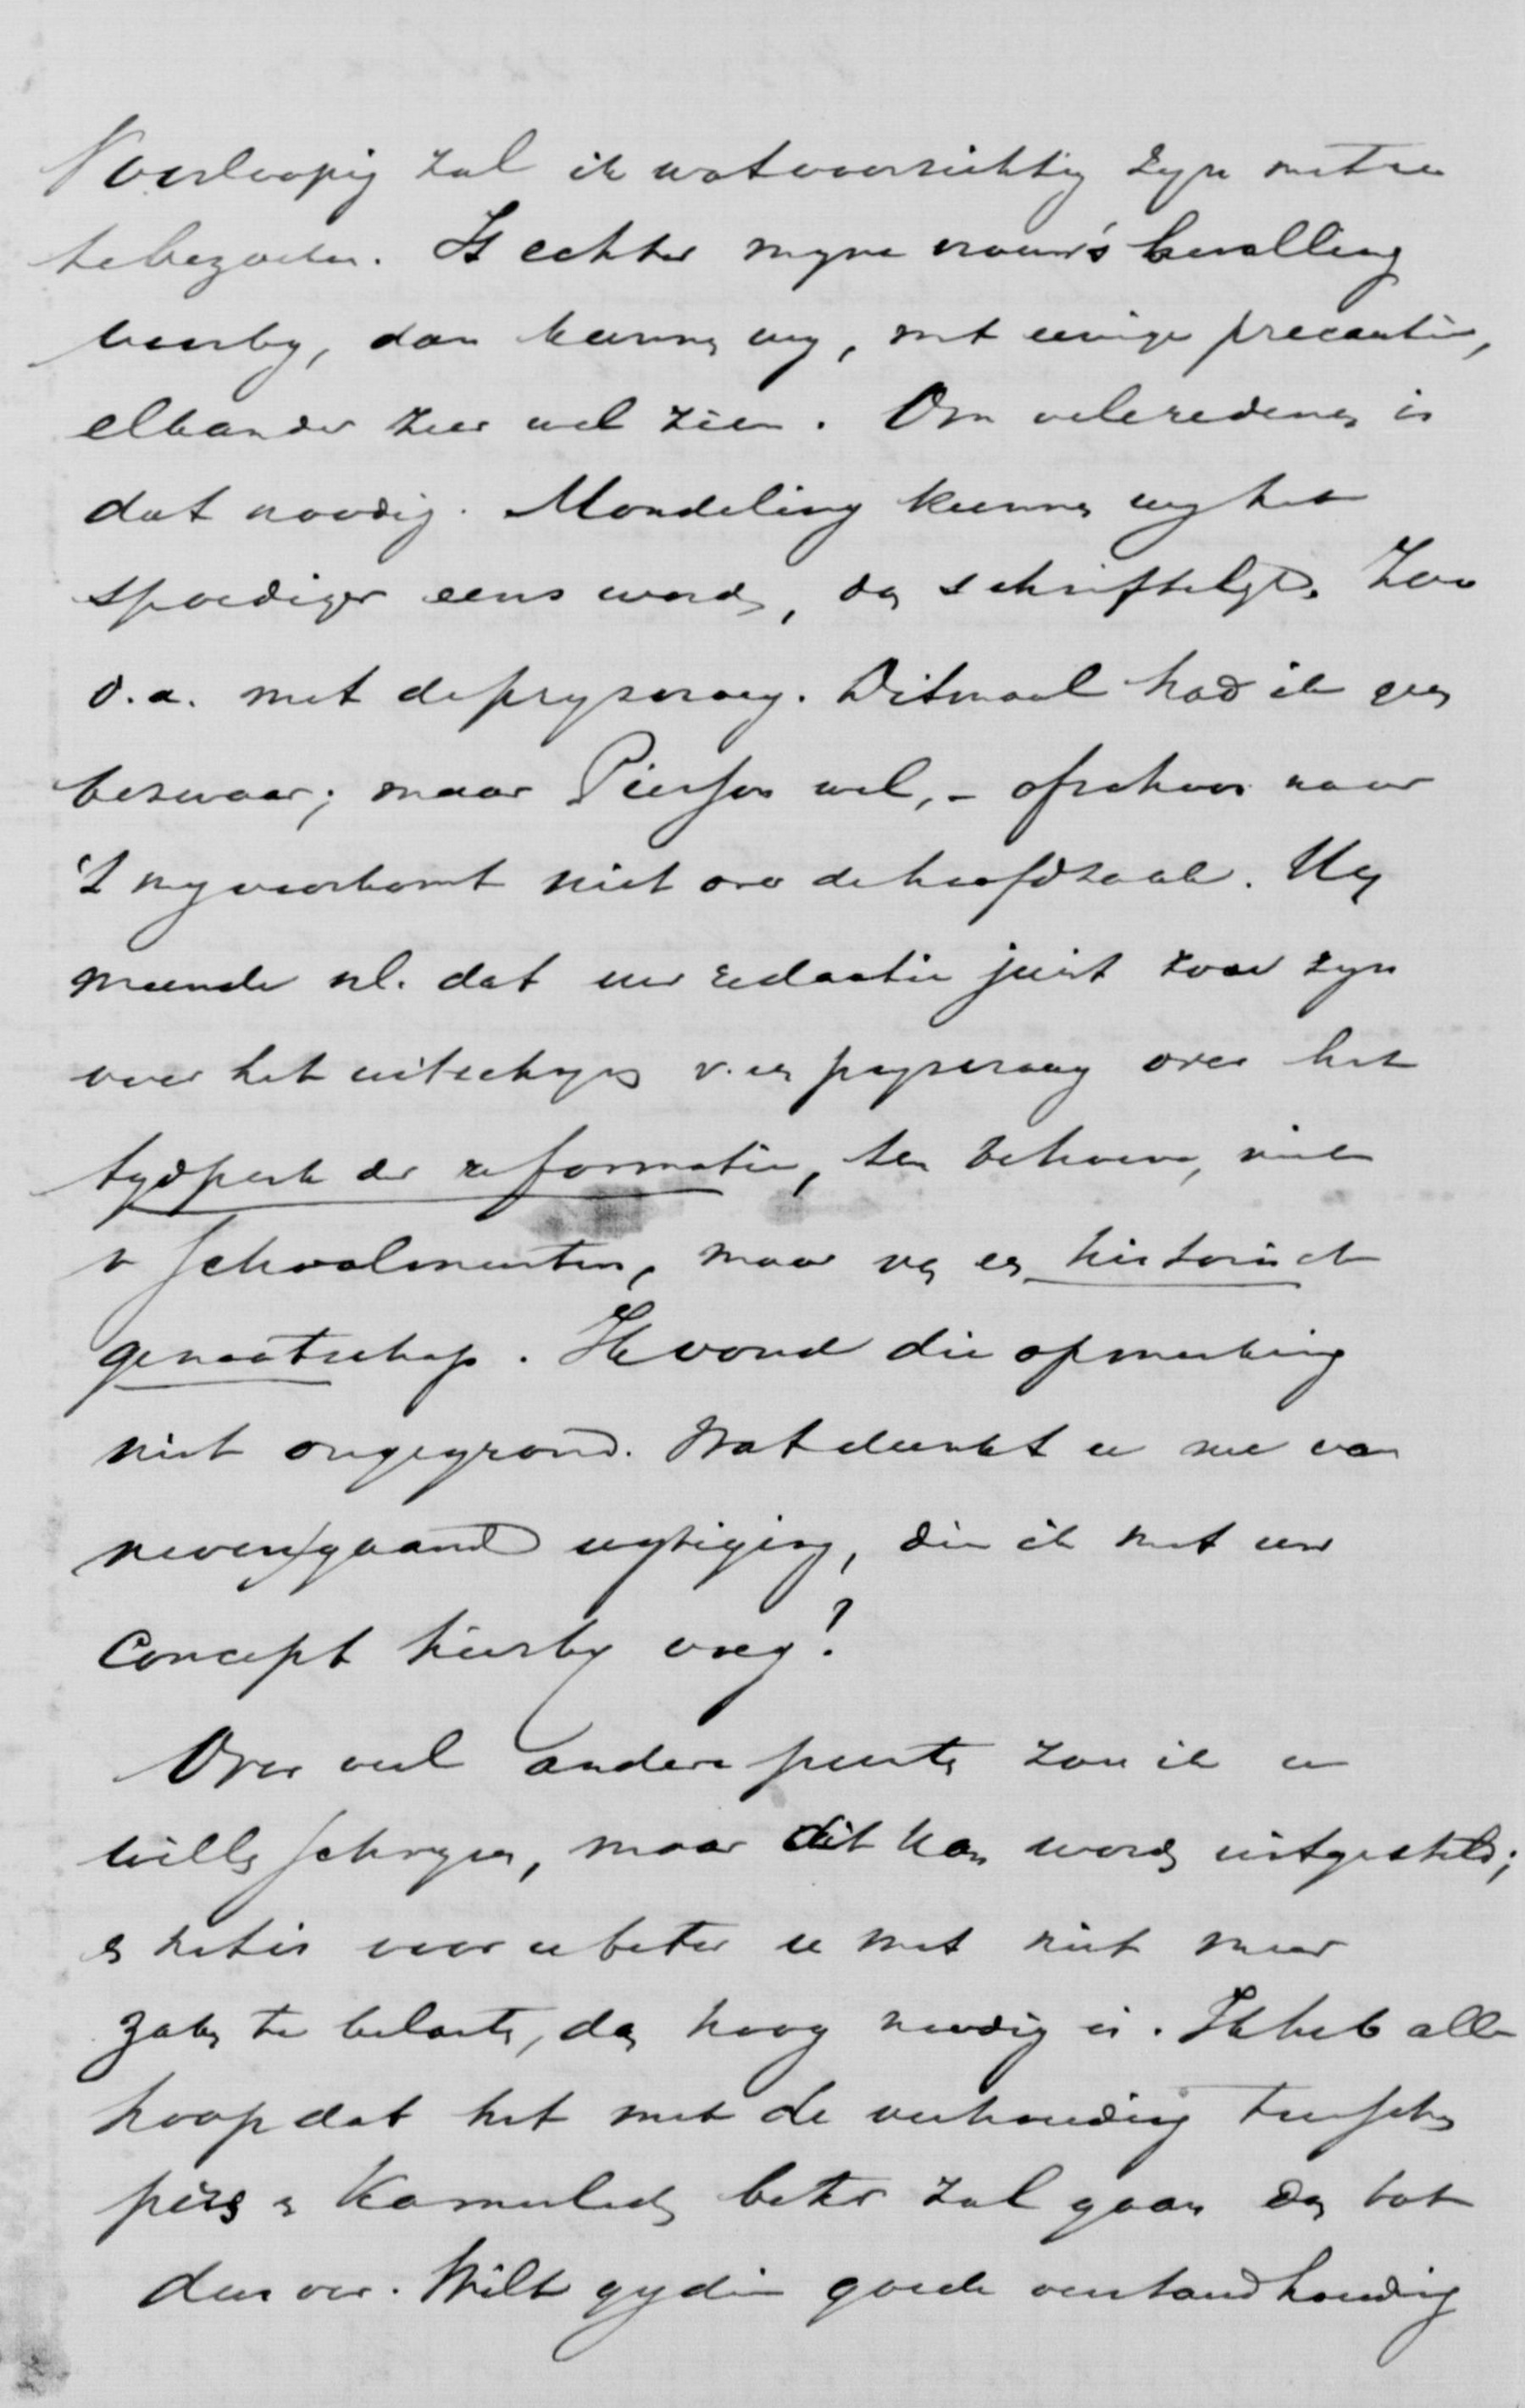 Voorloopig zal ik wat voorzichtig zyn met u
te bezoeken. Is echter myne vrouw's bevalling
voorby, dan kunnen wy, met eenige precautie,
elkander zeer wel zien. Om vele redenen is
dat noodig. Mondeling kunnen wy het
spoediger eens worden, dan schriftelyk. Zoo
o.a. met de prysvraag. Ditmaal had ik geen
bezwaar; maar Pierson wel, - ofschoon naar
't my voorkomt niet over de hoofdzaak. Hy
meende nl. dat uw redactie juist zou zyn
voor het uitschryven v. een prysvraag over het
tydperk der reformatie, ten behoeve, niet
v schoolmeesters, maar van een historisch
genootschap. Ik vond die opmerking
niet ongegrond. Wat dunkt u nu van
nevensgaand wyziging, die ik met uw
Concept hierby voeg?
Over veel andere punten zou ik u
willen schryven, maar dit kan worden uitgesteld;
en het is voor u beter u met niet meer
zaken te belasten, dan hoog noodig is. Ik heb alle
hoop dat het met de verhouding tusschen
pers en Kamerleden beter zal gaan dan tot
dusver. Wilt gy die goede verstandhouding